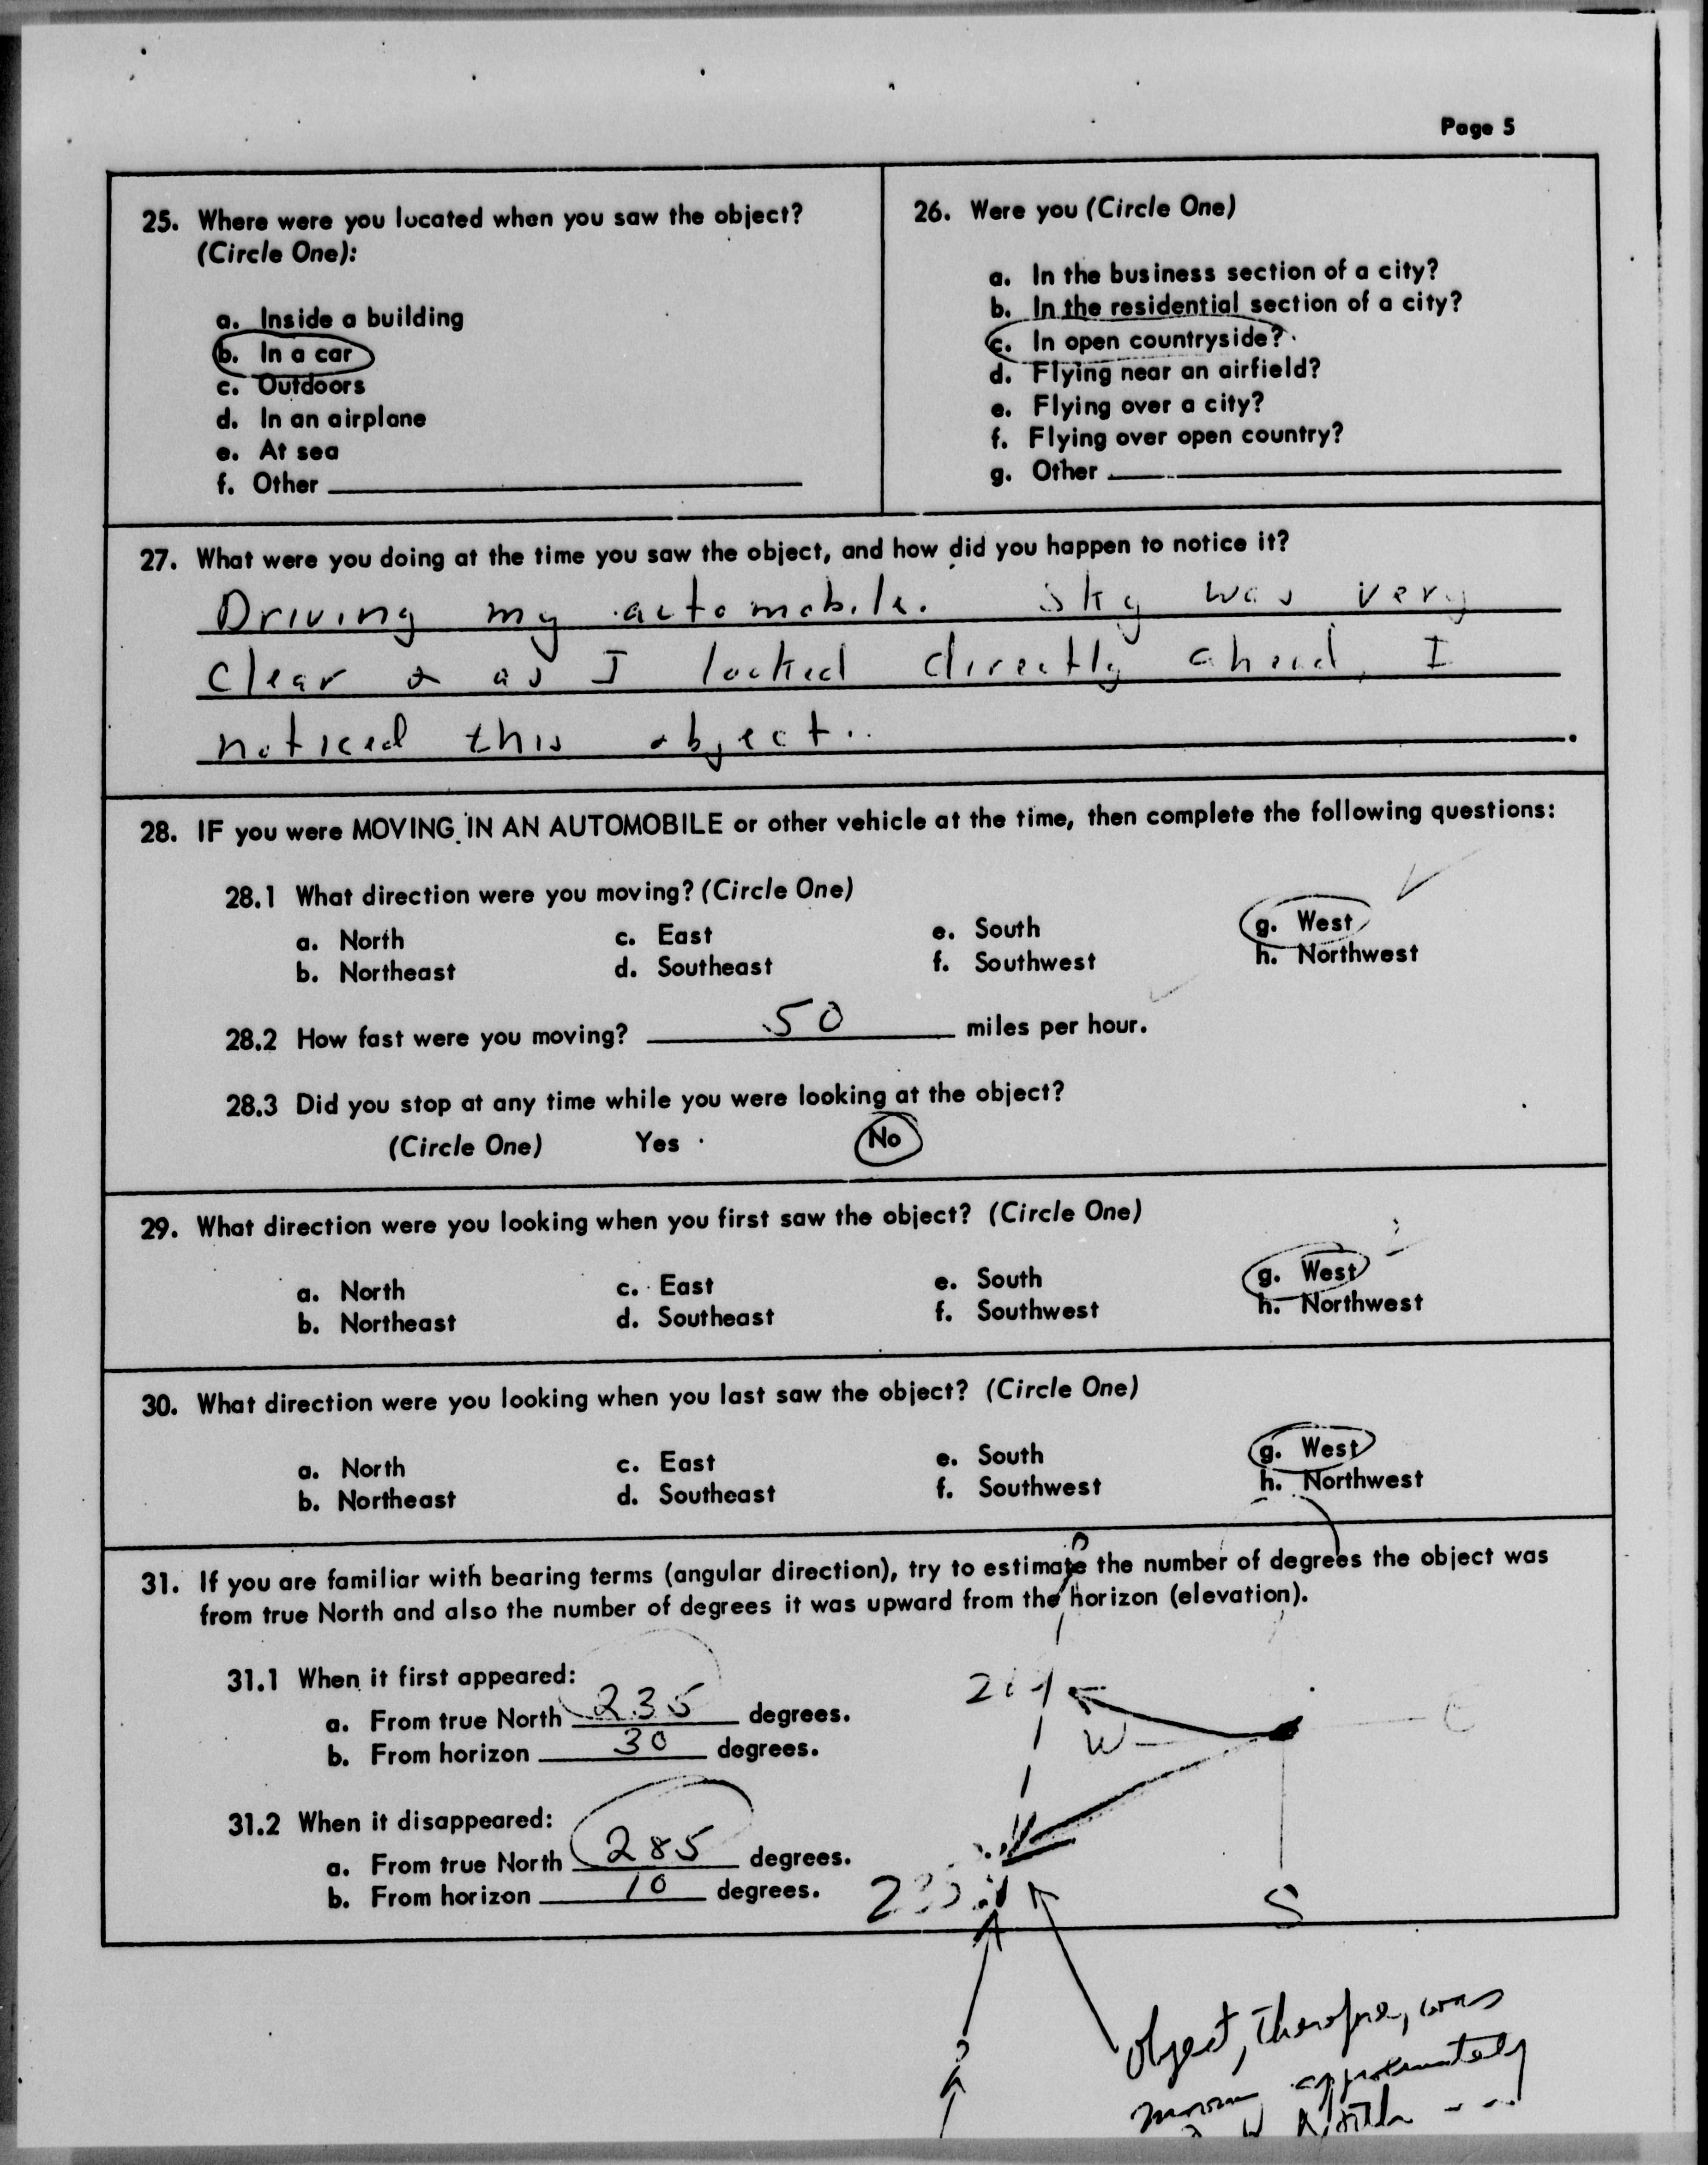 Page 5
25. Where were you located when you saw the object?
(Circle One):
a. Inside a building
b. In a car
c. Outdoors
d. In an airplane
e. At sea
f. Other
26. Were you (Circle One)
a. In the business section of a city?
b. In the residential section of a city?
c. In open countryside?
d. Flying near an airfield?
e. Flying over a city?
f. Flying over open country?
g. Other
27. What were you doing at the time you saw the object, and how did you happen to notice it?
Driving my automobile. Sky was very
clear & as I looked directly ahead, I
noticed this object.
28. IF you were MOVING IN AN AUTOMOBILE or other vehicle at the time, then complete the following questions:
28.1 What direction were you moving? (Circle One)
a. North c. East e. South g. West
b. Northeast d. Southeast f. Southwest h. Northwest
28.2 How fast were you moving? 50 miles per hour.
28.3 Did you stop at any time while you were looking at the object?
(Circle One) Yes No
29. What direction were you looking when you first saw the object? (Circle One)
a. North c. East e. South g. West
b. Northeast d. Southeast f. Southwest h. Northwest
30. What direction were you looking when you last saw the object? (Circle One)
a. North c. East e. South g. West
b. Northeast d. Southeast f. Southwest h. Northwest
31. If you are familiar with bearing terms (angular direction), try to estimate the number of degrees the object was
from true North and also the number of degrees it was upward from the horizon (elevation).
31.1 When it first appeared:
a. From true North 235 degrees.
b. From horizon 30 degrees.
W
31.2 When it disappeared:
a. From true North 285 degrees.
b. From horizon 10 degrees.
S
Object, Therefore, was
approximately
North ---